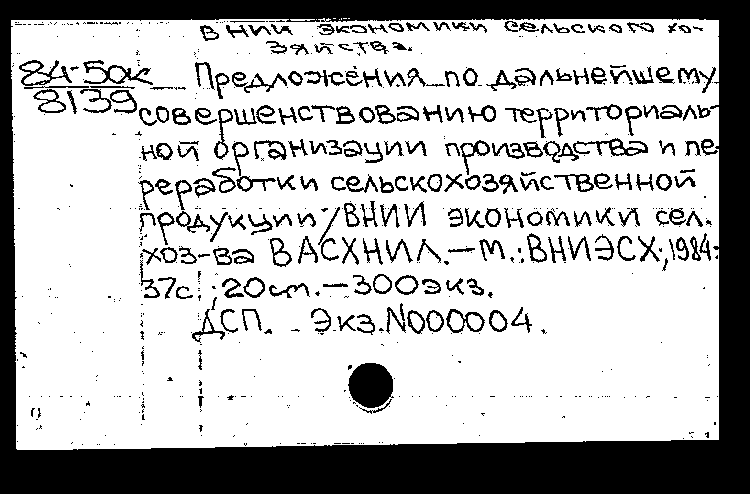 ВНИИ экономики сельского хо-
зяйства.
84-50к
8139
Предложения по дальнейшему
совершенствованию территориаль-
ной организации производства и пе-
реработки сельскохозяйственной
продукции / ВНИИ экономики сел.
хоз-ва ВАСХНИЛ. — М.: ВНИЭСХ, 1984.
37с.; 20см. — 300экз.
ДСП. Экз. N000004.